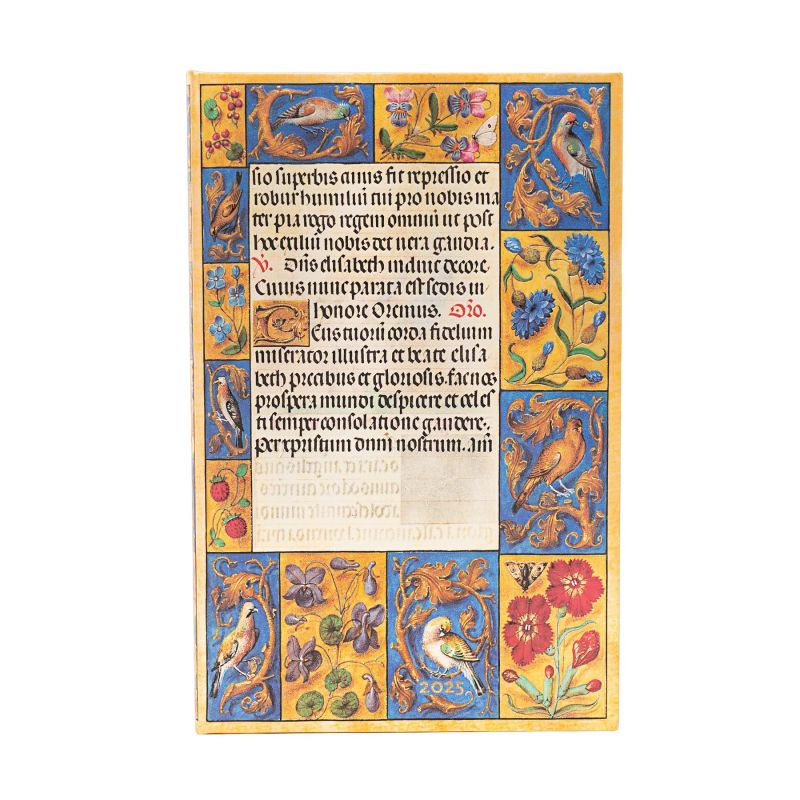 sio superbis cuius fit repressio et
robur humiliū tui pro nobis ma
ter pia rogo regem omniū ut post
hoc exiliū nobis det uera gaudia.
V. Dñs elisabeth induit decore
Cuius nunc parata est sedis in
honore Oremus. Oro.
Deus tuorū corda fidelium
miserator illustra et beate elisa
beth precibus et gloriosis. fac nos
prospera mundi despicere et celes
ti semper consolatione gaudere.
Per xpristum dnm nostrum. am
2025